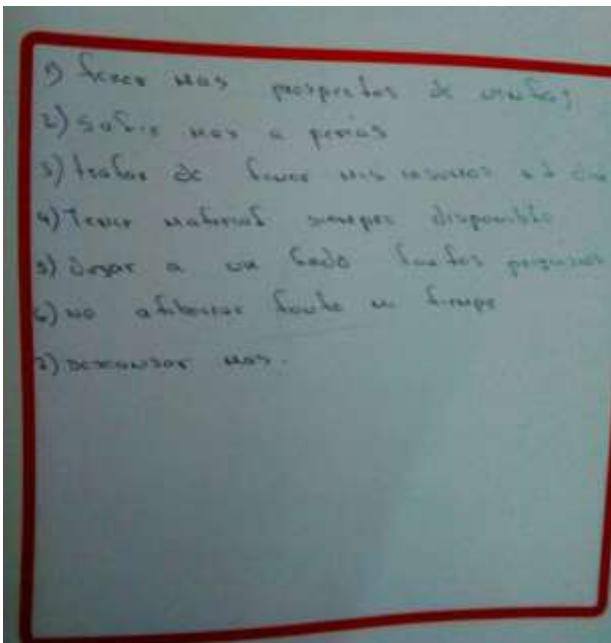 1) tener mas prospectos de ventas
2) Salir mas a ferias
3) tratar de tener mis insumos al dia
4) Tener material siempre disponible
5) Dejar a un lado tantos
6) no tanto mi tiempo
7) Descansar mas.